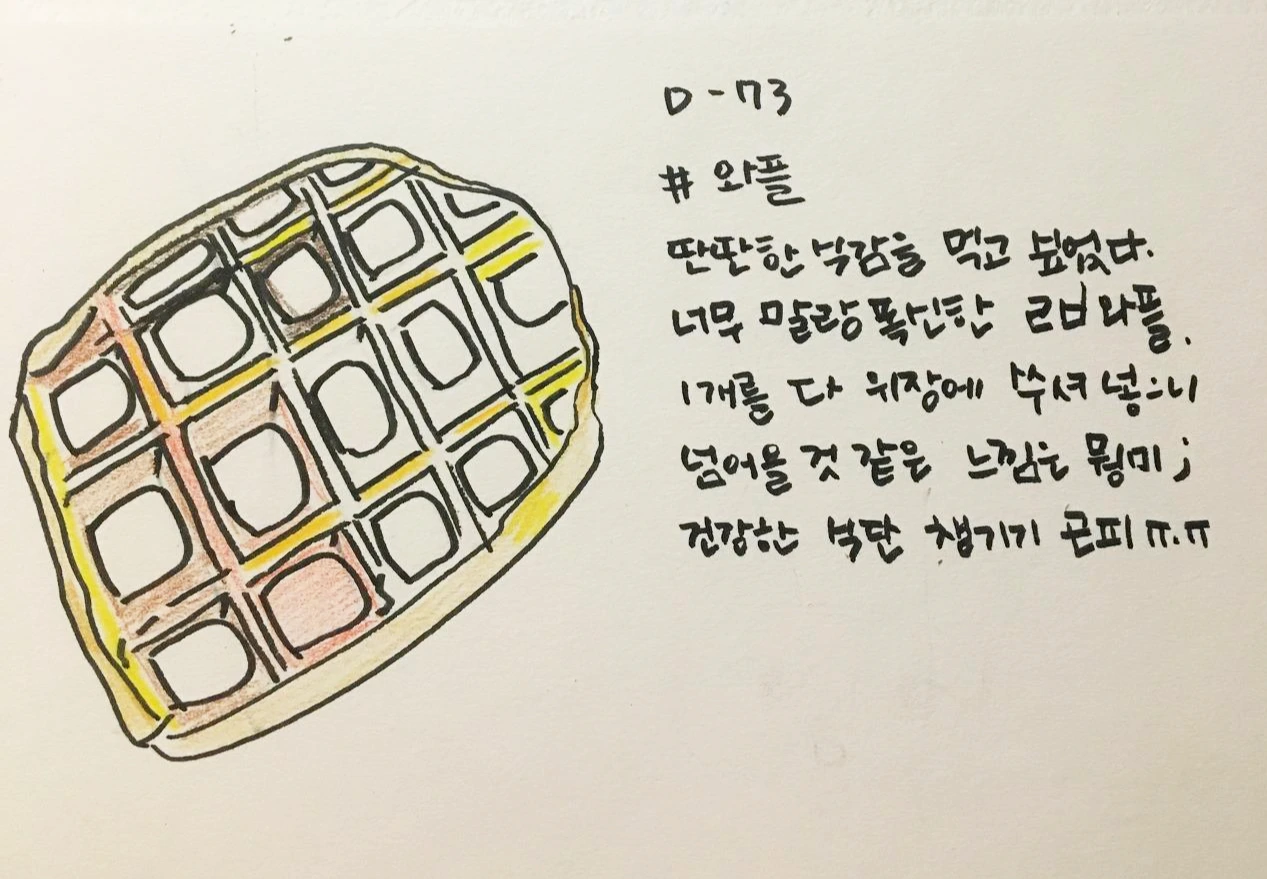 D-73
# 와플
딴딴한 식감을 먹고 싶었다.
너무 말랑폭신한 르브와플.
1개를 다 위장에 쑤셔넣으니
넘어올것 같은 느낌은 뭥미;
건강한 식단 챙기기 곤피ㅠ.ㅠ